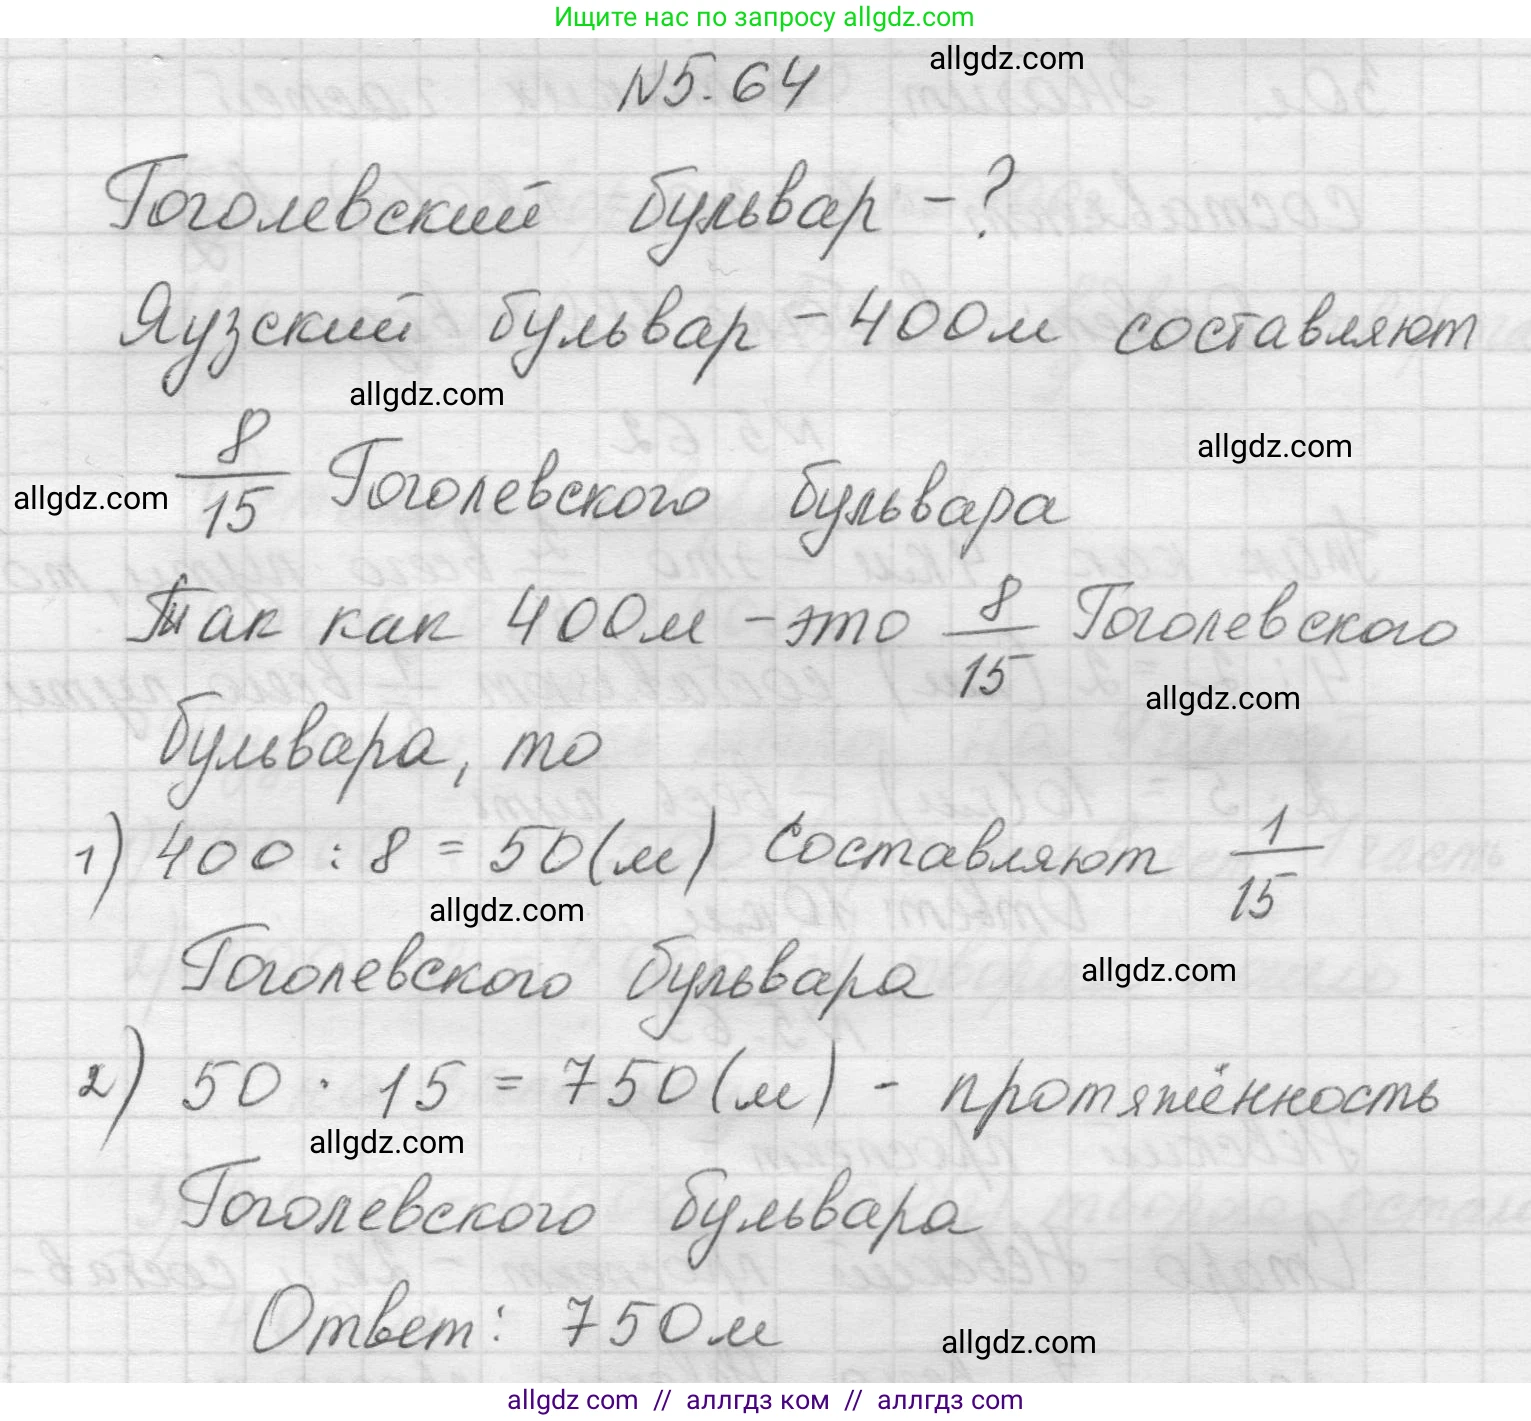 Ищите нас по запросу allgdz.com
allgdz.com
N5.64
Гоголевский бульвар - ?
Яузский бульвар - 400м составляют
allgdz.com
allgdz.com
allgdz.com
8/15 Гоголевского бульвара
Так как 400м - это 8/15 Гоголевского
allgdz.com
бульвара, то
1) 400 : 8 = 50(м) составляют 1/15
allgdz.com
Гоголевского бульвара
allgdz.com
2) 50 · 15 = 750(м) - протяжённость
allgdz.com
Гоголевского бульвара
Ответ: 750м
allgdz.com
allgdz com // аллгдз ком // аллгдз com